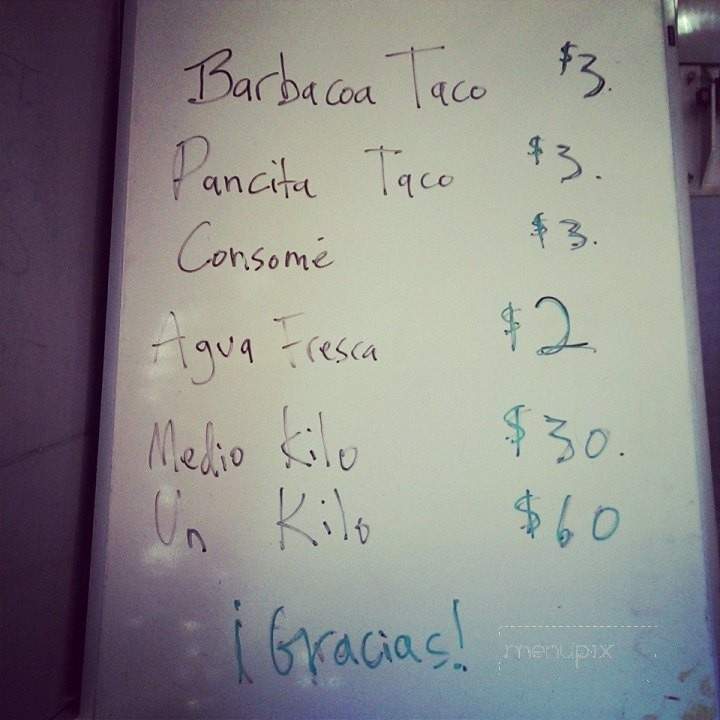 Barbacoa Taco $3.
Pancita Taco $3.
Consomé $3.
Agua Fresca $2
Medio Kilo $30.
Un Kilo $60
¡Gracias!
menupix